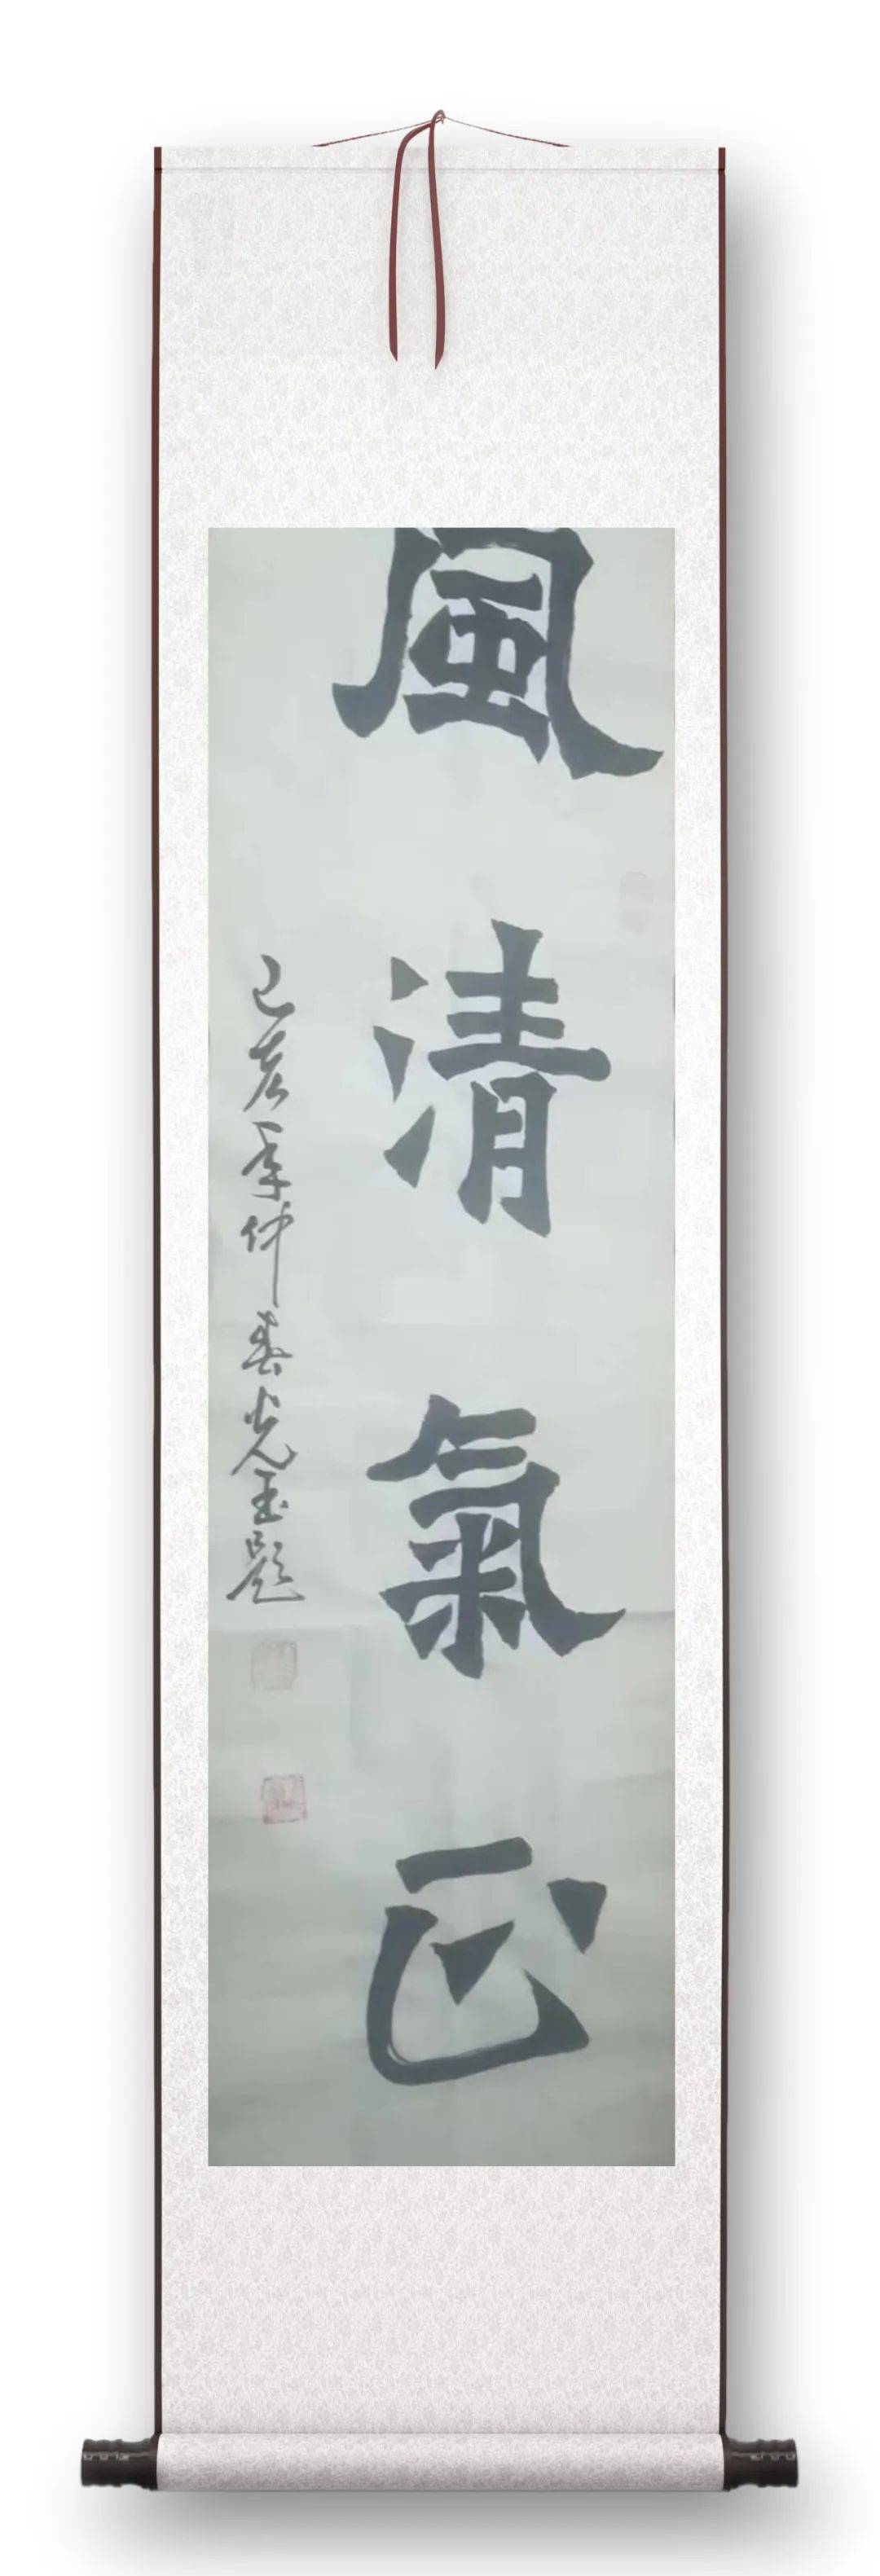 風清氣正
己亥年仲春光玉題